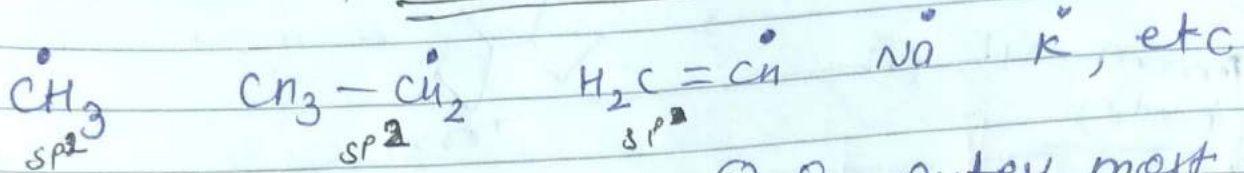 ĊH₃ CH₃ – ĊH₂ H₂C = ĊH Na• K•, etc
sp² sp² sp²
outer most